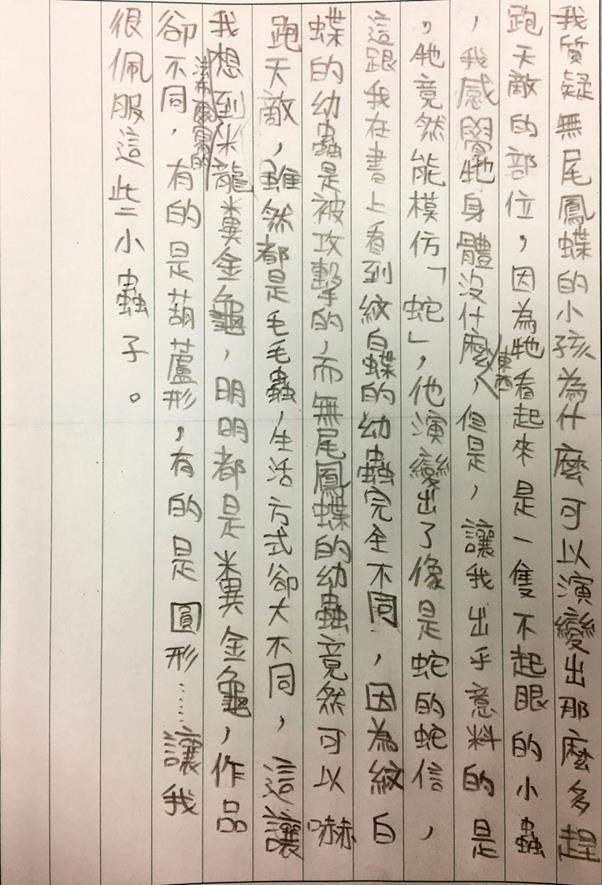 我質疑無尾鳳蝶的小孩為什麼可以演變出那麼多趕
跑天敵的部位，因為牠看起來是一隻不起眼的小蟲
，我感覺牠身體沒什麼東西，但是，讓我出乎意料的是
，牠竟然能模仿「蛇」，他演變出了像是蛇的蛇信，
這跟我在書上看到紋白蝶的幼蟲完全不同，因為紋白
蝶的幼蟲是被攻擊的，而無尾鳳蝶的幼蟲竟然可以嚇
跑天敵，雖然都是毛毛蟲，生活方式卻大不同，這讓
我想到法布爾寫的米龍糞金龜，明明都是糞金龜，作品
卻不同，有的是葫蘆形，有的是圓形……讓我
很佩服這些小蟲子。